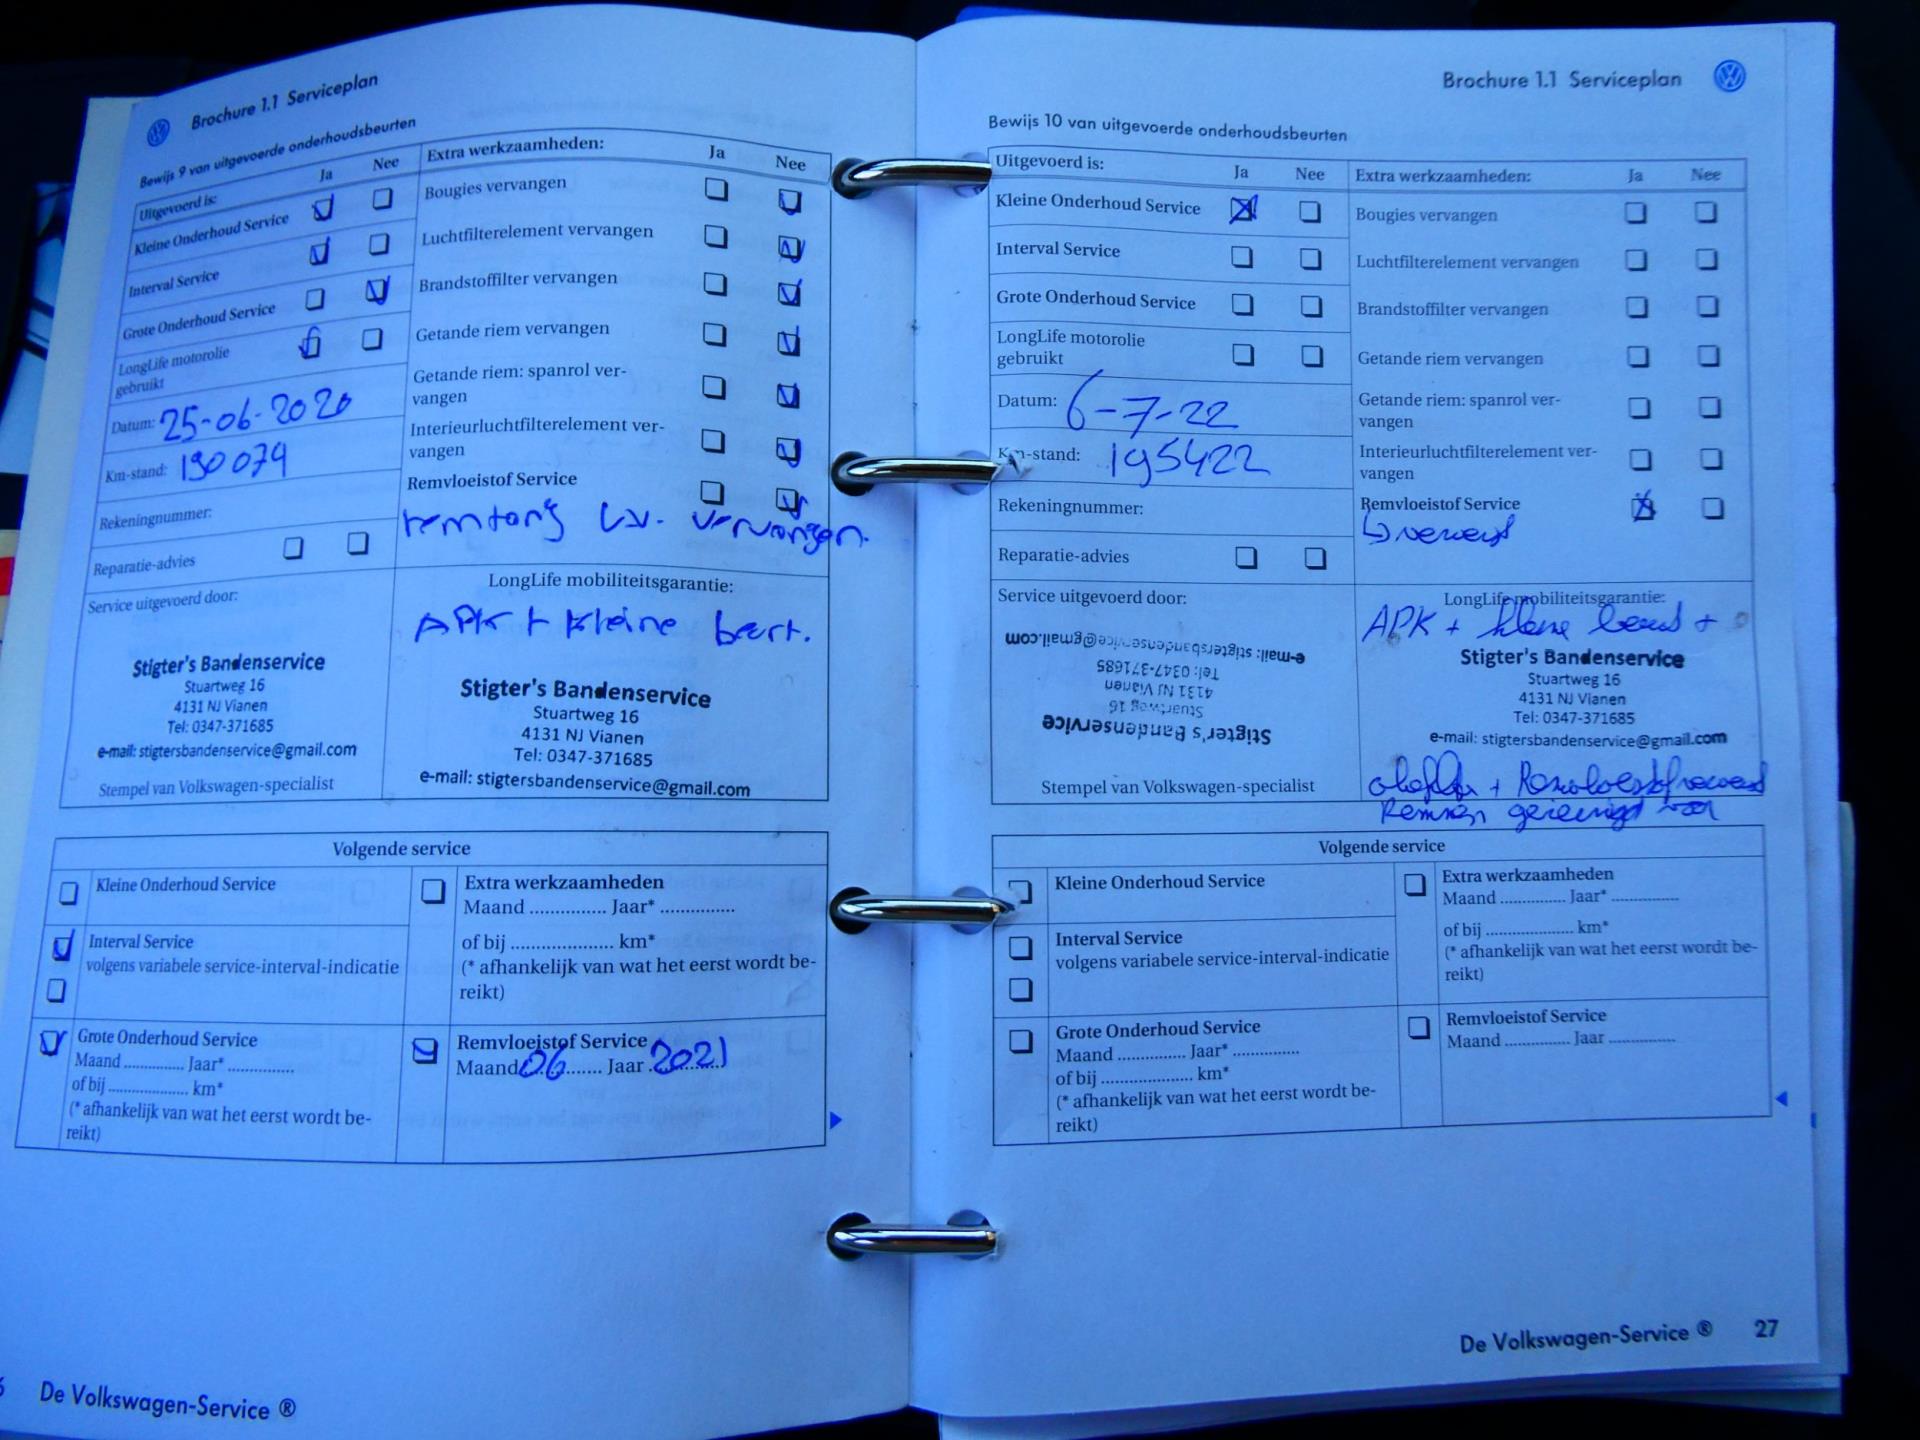 Brochure 1.1 Serviceplan
Bewijs 9 van uitgevoerde onderhoudsbeurten
Uitgevoerd is: Ja Nee
Kleine Onderhoud Service
Interval Service
Grote Onderhoud Service
LongLife motorolie
gebruikt
Datum: 25-06-2020
Km-stand: 190079
Rekeningnummer:
Reparatie-advies
Service uitgevoerd door:
Stigter's Bandenservice
Stuartweg 16
4131 NJ Vianen
Tel: 0347-371685
e-mail: stigtersbandenservice@gmail.com
Stempel van Volkswagen-specialist
Extra werkzaamheden: Ja Nee
Bougies vervangen
Luchtfilterelement vervangen
Brandstoffilter vervangen
Getande riem vervangen
Getande riem: spanrol ver-
vangen
Interieurluchtfilterelement ver-
vangen
Remvloeistof Service
remtang l.v. vervangen.
LongLife mobiliteitsgarantie:
APK + kleine beurt.
Stigter's Bandenservice
Stuartweg 16
4131 NJ Vianen
Tel: 0347-371685
e-mail: stigtersbandenservice@gmail.com
Volgende service
Kleine Onderhoud Service
Interval Service
volgens variabele service-interval-indicatie
Grote Onderhoud Service
Maand ............... Jaar* ...............
of bij .................... km*
(* afhankelijk van wat het eerst wordt be-
reikt)
Extra werkzaamheden
Maand ............... Jaar* ...............
of bij .................... km*
(* afhankelijk van wat het eerst wordt be-
reikt)
Remvloeistof Service
Maand 06 Jaar 2021
De Volkswagen-Service ®
Brochure 1.1 Serviceplan
Bewijs 10 van uitgevoerde onderhoudsbeurten
Uitgevoerd is: Ja Nee
Kleine Onderhoud Service
Interval Service
Grote Onderhoud Service
LongLife motorolie
gebruikt
Datum: 6-7-22
Km-stand: 195422
Rekeningnummer:
Reparatie-advies
Service uitgevoerd door:
Stigter's Bandenservice
Stuartweg 16
4131 NJ Vianen
Tel: 0347-371685
e-mail: stigtersbandenservice@gmail.com
Stempel van Volkswagen-specialist
Extra werkzaamheden: Ja Nee
Bougies vervangen
Luchtfilterelement vervangen
Brandstoffilter vervangen
Getande riem vervangen
Getande riem: spanrol ver-
vangen
Interieurluchtfilterelement ver-
vangen
Remvloeistof Service
LongLife mobiliteitsgarantie:
APK + kleine beurt +
Stigter's Bandenservice
Stuartweg 16
4131 NJ Vianen
Tel: 0347-371685
e-mail: stigtersbandenservice@gmail.com
+
Remmen gereinigd voor
Volgende service
Kleine Onderhoud Service
Interval Service
volgens variabele service-interval-indicatie
Grote Onderhoud Service
Maand ............... Jaar* ...............
of bij .................... km*
(* afhankelijk van wat het eerst wordt be-
reikt)
Extra werkzaamheden
Maand ............... Jaar* ...............
of bij .................... km*
(* afhankelijk van wat het eerst wordt be-
reikt)
Remvloeistof Service
Maand ............... Jaar ...............
De Volkswagen-Service ® 27